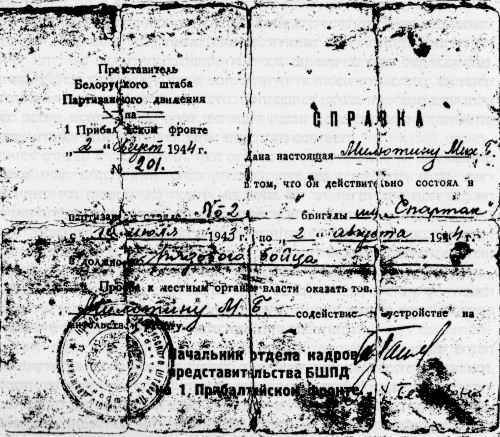 Представитель
Белорусского штаба
Партизанского движения
на
1 Прибалтийском фронте
„2“ август 1944 г.
№ 201.
СПРАВКА
Дана настоящая Милютину Мих. Б.
в том, что он действительно состоял в
партизанском отряде №2 бригады им. „Спартак“
с июля 1943 г. по „2“ августа 1944 г.
в должности рядового бойца
Просьба к местным органам власти оказать тов.
Милютину М. Б. содействие устройстве на
жительство и работу.
Начальник отдела кадров
представительства БШПД
на 1. Прибалтийском фронте